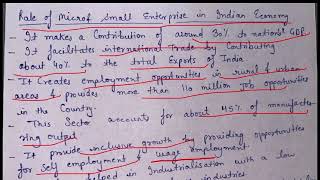 Role of Micro & Small Enterprise in Indian Economy
- It makes a Contribution of around 30% to nation's GDP
- It facilitates international Trade by Contributing
about 40% to the total Exports of India
- It Creates employment opportunities in rural & urban
areas & provides more than 110 million job opportunities
in the Country.
- This Sector accounts for about 45% of manufactu
ring output
- It provide inclusive growth by providing opportunities
for self employment & wage employment.
helped in Industrialisation with a low
industries